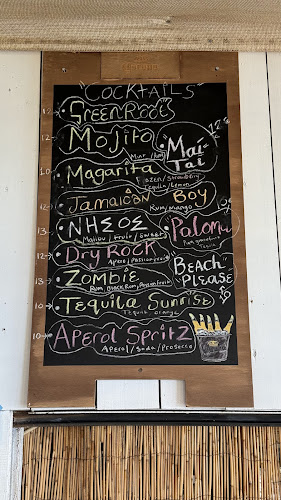 COCKTAILS
12 GREEN ROOTS
12 MOJITO
Mint / Rum
Mai-Tai 12€
12 MAGARITA
Frozen / Strawberry
Tequila / Lemon
10 JAMAICAN BOY
Rum/mango
13 ΝΗΣΟΣ
Malibu / Fruit / Sweet
PALOMA
Tequila
12 DRY ROCK
Aperol / Passionfruit
ZOMBIE
Rum, Black Rum, Passionfruit
"BEACH PLEASE"
10
10 TEQUILA SUNRISE
Tequila orange
10 APEROL SPRITZ
APEROL / Soda / Prosecco